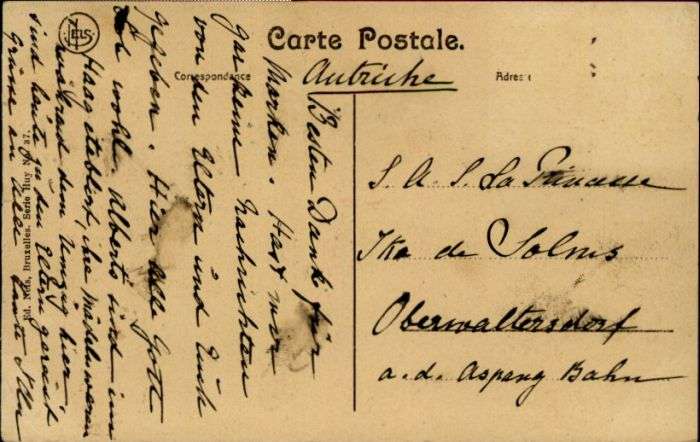 Carte Postale.
Correspondance
Autriche
Adresse
S. A. S. La Princesse
Ika de Solms
Oberwaltersdorf
a. d. Aspang Bahn
Besten Dank für
Marken. Hast mir
gar keine Nachrichten
von den Eltern und Euch
gegeben. Hier alle Gott
Lob wohl. Alberts sind im
Haag etabliert, ihre Mädels waren
grad dem Umzug hier.
sind heute zu den Eltern gereist
Grüsse an Alle
Ed. Nels, Bruxelles. Serie Huy No. 87.